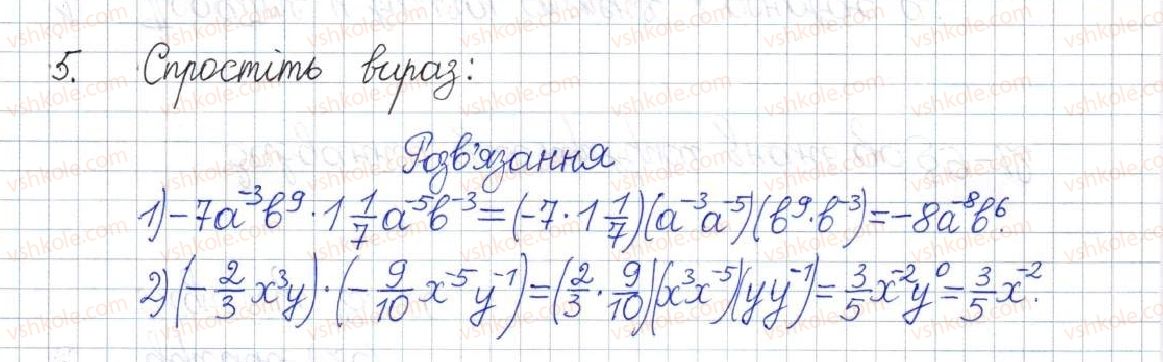 5. Спростіть вираз:
Розв'язання
1) -7a⁻³b⁹ · 1 1/7 a⁻⁵b⁻³ = (-7 · 1 1/7)(a⁻³a⁻⁵)(b⁹ · b⁻³) = -8a⁻⁸b⁶.
2) (-2/3 x³y) · (-9/10 x⁻⁵y⁻¹) = (2/3 · 9/10)(x³x⁻⁵)(yy⁻¹) = 3/5 x⁻²y⁰ = 3/5 x⁻².